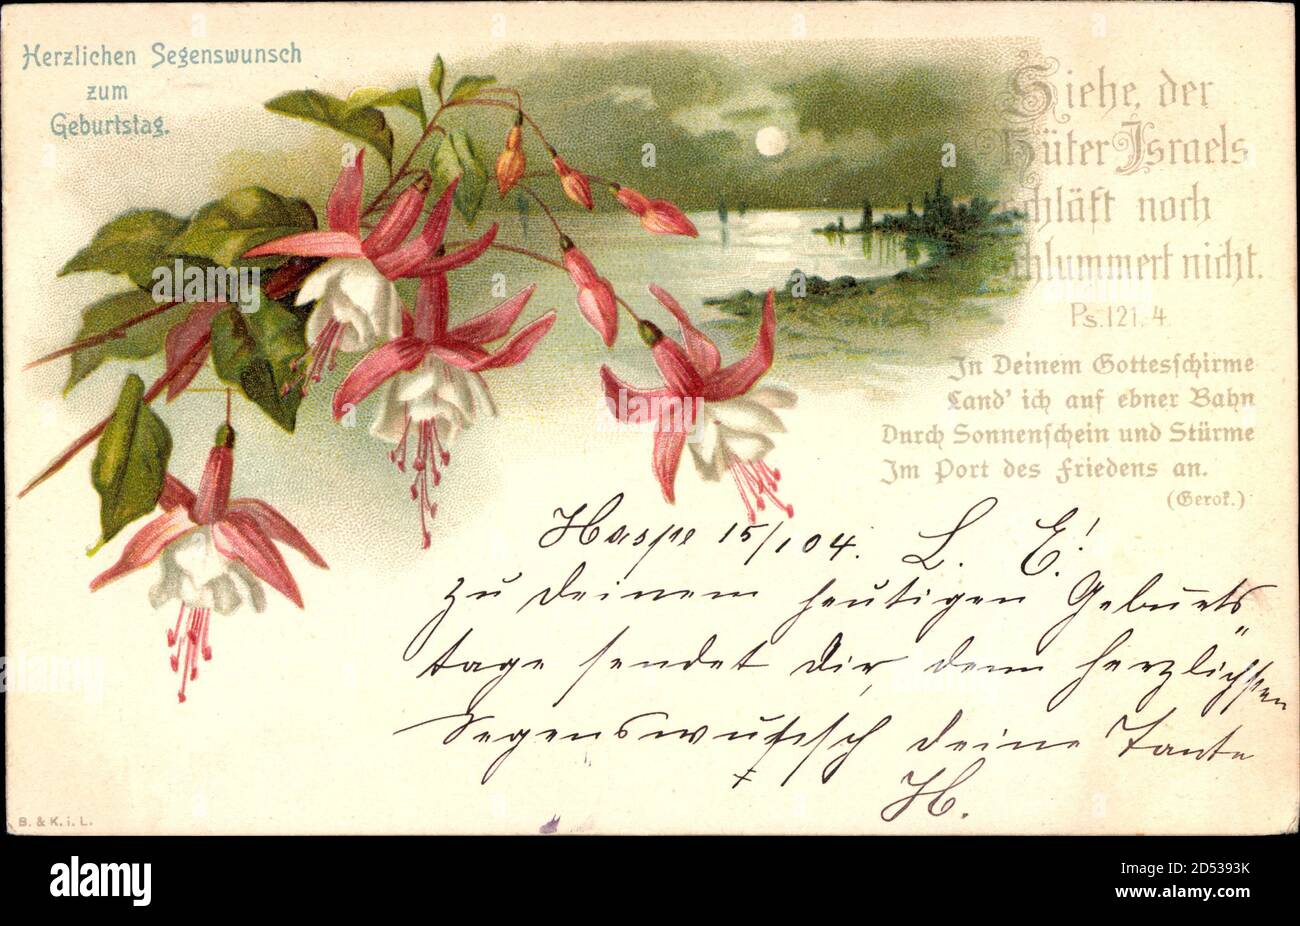 Herzlichen Segenswunsch
zum
Geburtstag.
Siehe, der
Hüter Israels
schläft noch
schlummert nicht.
Ps. 121. 4
In Deinem Gottesschirme
Land' ich auf ebner Bahn
Durch Sonnenschein und Stürme
Im Port des Friedens an.
(Gerok.)
Haspe 15/1 04. L. E!
Zu deinem heutigen Geburts
tage sendet dir, den herzlichsten
Segenswunsch deine Tante
H.
B. & K. i. L.
alamy
Image ID: 2D5393K
www.alamy.com